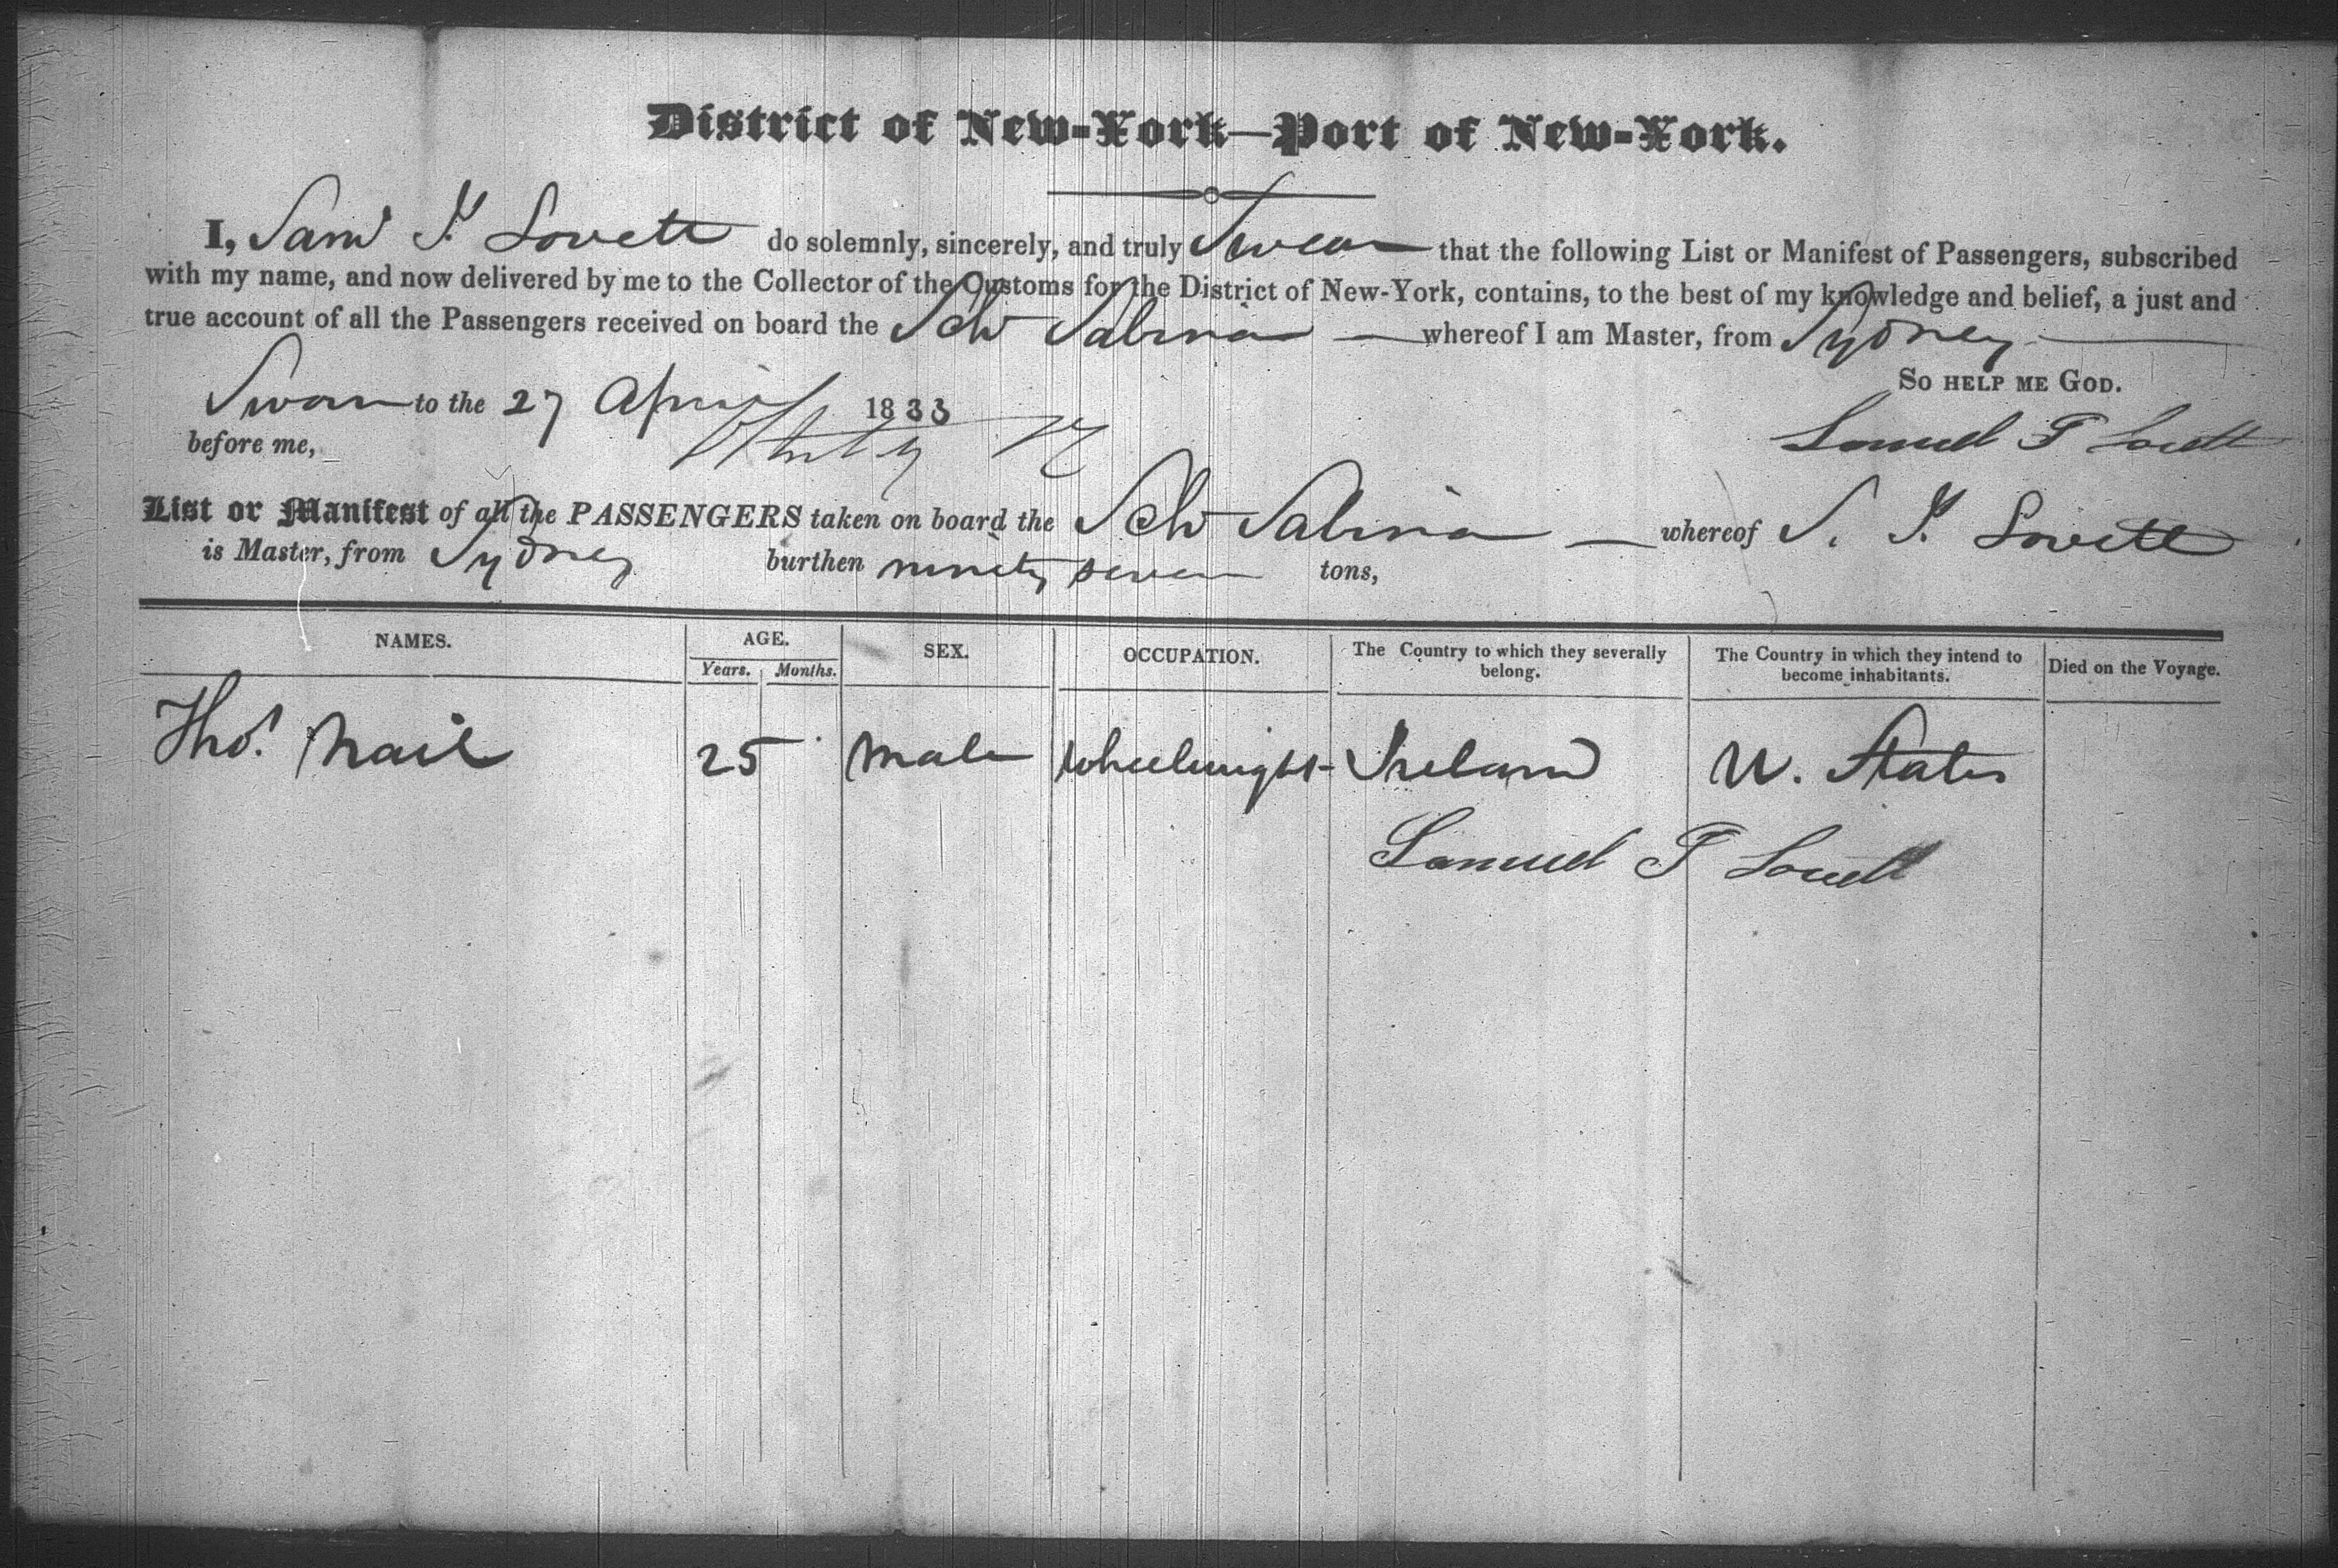 District of New-York—Port of New-York.
I, Saml T. Lovett do solemnly, sincerely, and truly Swear that the following List or Manifest of Passengers, subscribed
with my name, and now delivered by me to the Collector of the Customs for the District of New-York, contains, to the best of my knowledge and belief, a just and
true account of all the Passengers received on board the Schr Sabina — whereof I am Master, from Sydney —
So help me God.
Sworn to the 27 April 1833
before me,
Samuel T Lovett
List or Manifest of all the PASSENGERS taken on board the Schr Sabina — whereof S. T. Lovett
is Master, from Sydney burthen ninety seven tons,
NAMES. AGE. SEX. OCCUPATION. The Country to which they severally belong. The Country in which they intend to become inhabitants. Died on the Voyage.
Years. Months.
Thos. Nail 25 Male Wheelwright Ireland U. States
Samuel T Lovett